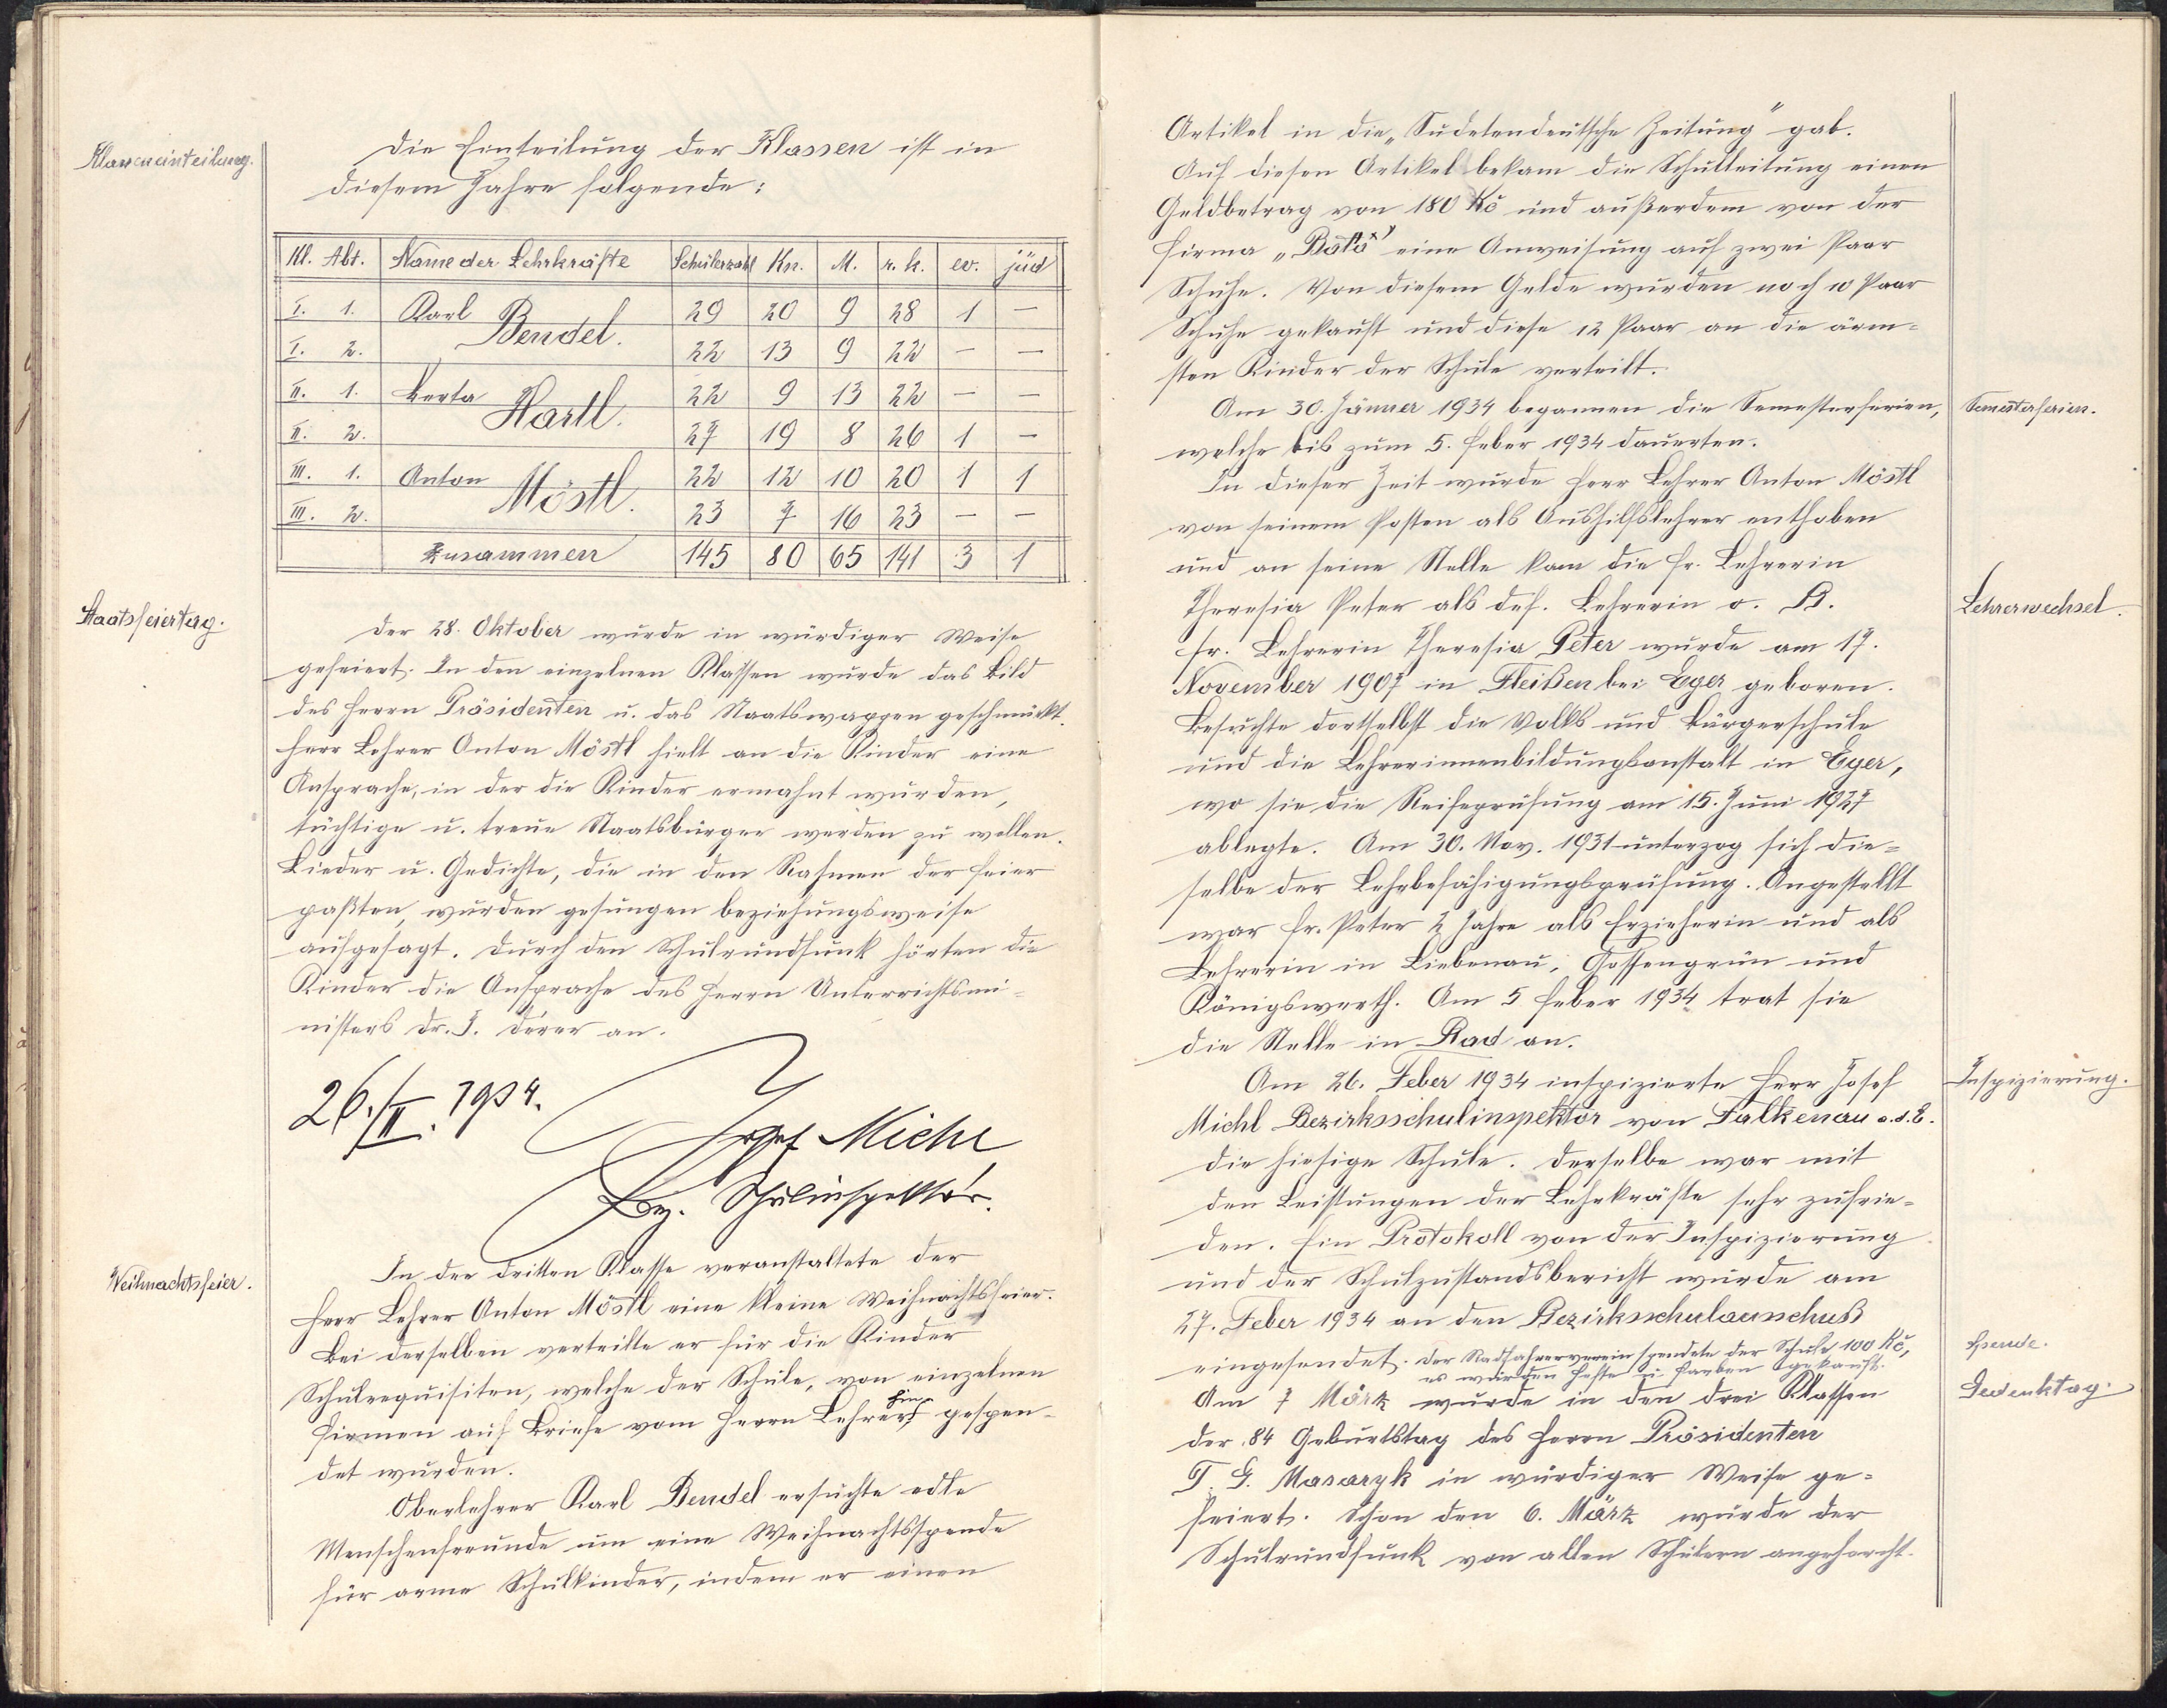 Klasseneinteilung.
Die Einteilung der Klassen ist in
diesem Jahre folgende:
Kl. Abt. Name der Lehrkräfte Schülerzahl Kn. M. r. k. ev. jüd
I. 1. Karl Bendel. 29 20 9 28 1 —
I. 2. 22 13 9 22 — —
II. 1. Berta Hartl. 22 9 13 22 — —
II. 2. 27 19 8 26 1 —
III. 1. Anton Möstl. 22 12 10 20 1 1
III. 2. 23 7 16 23 — —
Zusammen 145 80 65 141 3 1
Staatsfeiertag.
Der 28. Oktober wurde in würdiger Weise
gefeiert. In den einzelnen Klassen wurde das Bild
des Herrn Präsidenten u. das Staatswappen geschmückt.
Herr Lehrer Anton Möstl hielt an die Kinder eine
Ansprache, in der die Kinder ermahnt wurden,
tüchtige u. treue Staatsbürger werden zu wollen.
Lieder u. Gedichte, die in den Rahmen der Feier
paßten, wurden gesungen beziehungsweise
aufgesagt. Durch den Schulrundfunk hörten die
Kinder die Ansprache des Herrn Unterrichtsmi-
nisters Dr. I. Dérer an.
26./II. 1934.
Josef Michl
Bez. Schulinspektor.
Weihnachtsfeier.
In der dritten Klasse veranstaltete der
Herr Lehrer Anton Möstl eine kleine Weihnachtsfeier.
Bei derselben verteilte er für die Kinder
Schulrequisiten, welche der Schule, von einzelnen
Firmen auf Briefe vom Herrn Lehrer hin gespen-
det wurden.
Oberlehrer Karl Bendel ersuchte edle
Menschenfreunde um eine Weihnachtsspende
für arme Schulkinder, indem er einen
Artikel in die „Sudetendeutsche Zeitung" gab.
Auf diesen Artikel bekam die Schulleitung einen
Geldbetrag von 180 Kč und außerdem von der
Firma „Bat'a" eine Anweisung auf zwei Paar
Schuhe. Von diesem Gelde wurden noch 10 Paar
Schuhe gekauft und diese 12 Paar an die ärm-
sten Kinder der Schule verteilt.
Am 30. Jänner 1934 begannen die Semesterferien,
Semesterferien.
welche bis zum 5. Feber 1934 dauerten.
In dieser Zeit wurde Herr Lehrer Anton Möstl
von seinem Posten als Aushilfslehrer enthoben
und an seine Stelle kam die Fr. Lehrerin
Theresia Peter als def. Lehrerin o. K.
Lehrerwechsel.
Fr. Lehrerin Theresia Peter wurde am 17.
November 1907 in Fleißen bei Eger geboren.
Besuchte dortselbst die Volks und Bürgerschule
und die Lehrerinnenbildungsanstalt in Eger,
wo sie die Reifeprüfung am 15. Juni 1927
ablegte. Am 30. Nov. 1931 unterzog sich die-
selbe der Lehrbefähigungsprüfung. Angestellt
war Fr. Peter 2 Jahre als Erzieherin und als
Lehrerin in Liebenau, Gossengrün und
Königswerth. Am 5 Feber 1934 trat sie
die Stelle in Rad an.
Am 26. Feber 1934 inspizierte Herr Josef
Inspizierung.
Michl Bezirksschulinspektor von Falkenau a. d. E.
die hiesige Schule. Derselbe war mit
den Leistungen der Lehrkräfte sehr zufrie-
den. Ein Protokoll von der Inspizierung
und der Schulzustandsbericht wurde am
27. Feber 1934 an den Bezirksschulauschuß
eingesendet. Der Radfahrerverein spendete der Schule 100 Kč,
Spende.
es wurden Hefte u. Farben gekauft.
Am 7 März wurde in den drei Klassen
Gedenktag.
der 84 Geburtstag des Herrn Präsidenten
T. G. Masaryk in würdiger Weise ge-
feiert. Schon den 6. März wurde der
Schulrundfunk von allen Schülern angehorcht.